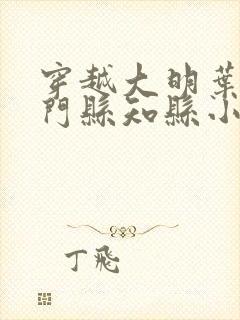 穿越大明葉
門縣知縣小
丁飛